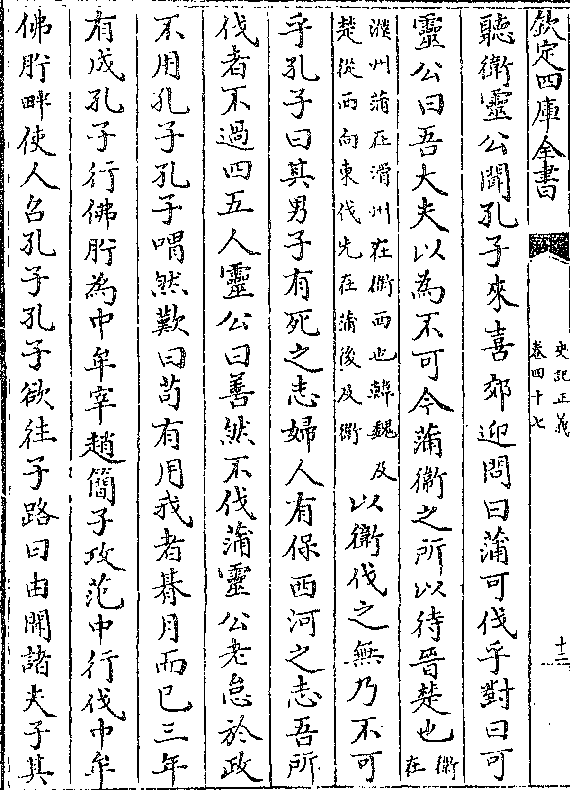 欽定四庫全書
史記正義
卷四十七
十三
聽衛靈公聞孔子來喜郊迎問曰蒲可伐乎對曰可
靈公曰吾大夫以為不可今蒲衞之所以待晉楚也衛在
濮州蒲在滑州在衞西也韓魏及
楚從西向東伐先在蒲後及衞
以衞伐之無乃不可
乎孔子曰其男子有死之志婦人有保西河之志吾所
伐者不過四五人靈公曰善然不伐蒲靈公老怠於政
不用孔子孔子喟然歎曰苟有用我者朞月而已三年
有成孔子行佛肸為中牟宰趙簡子攻范中行伐中牟
佛肸畔使人召孔子孔子欲往子路曰由聞諸夫子其